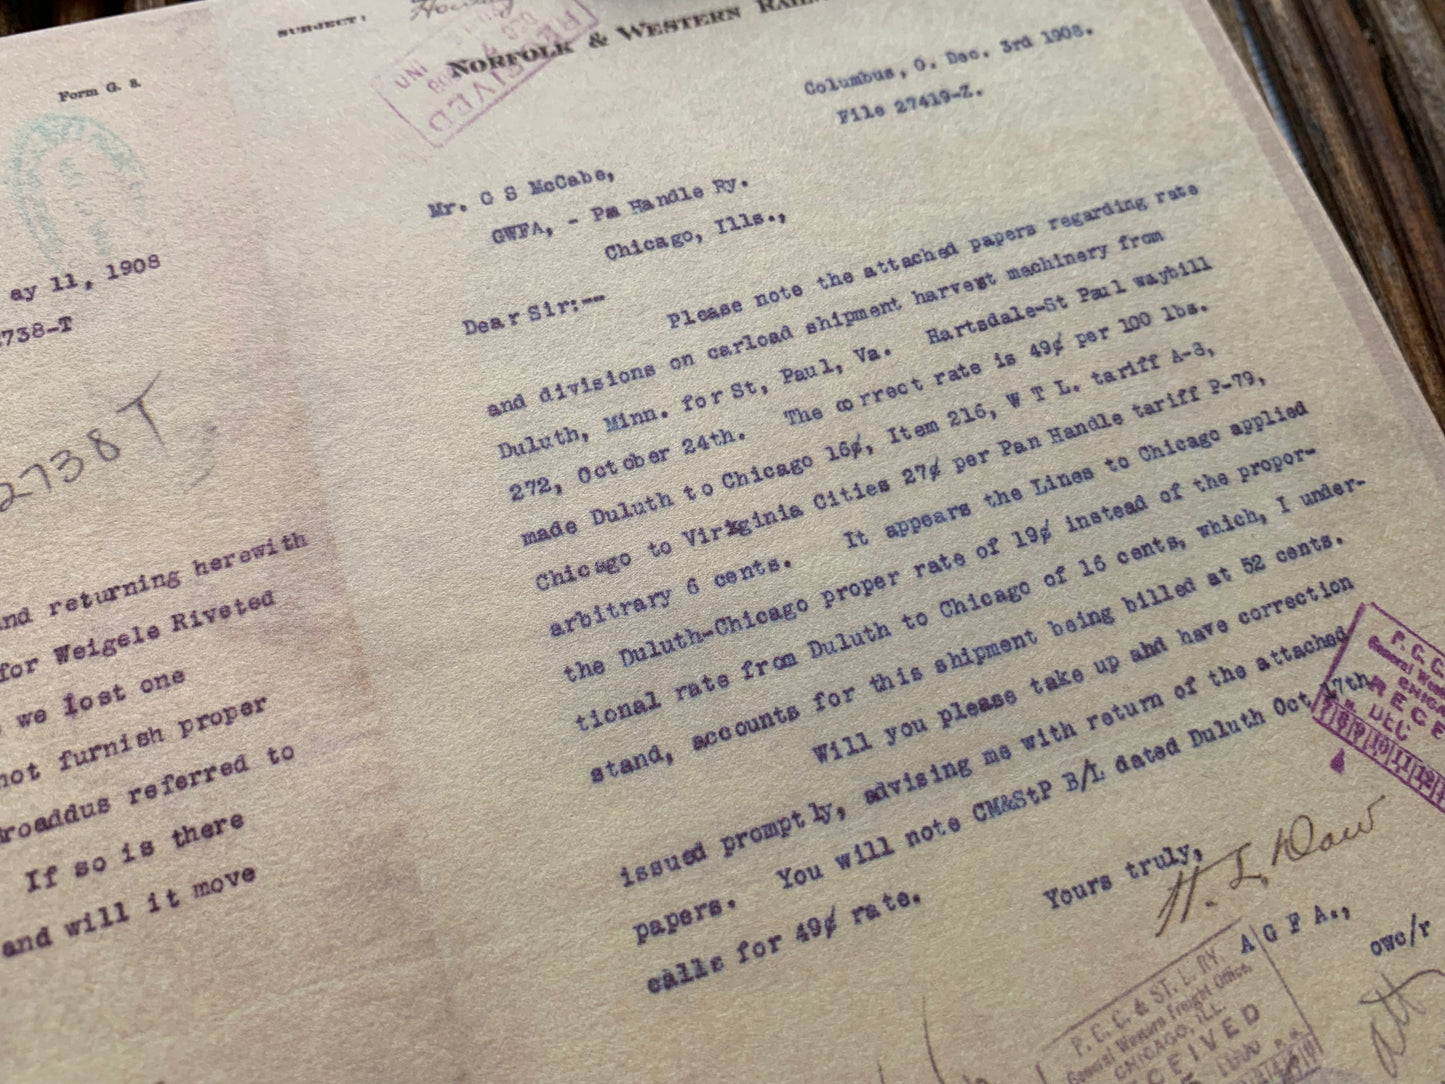 SUBJECT:
NORFOLK & WESTERN
Form G. 8.
RECEIVED
1908
Columbus, O. Dec. 3rd 1908.
File 27419-Z.
Mr. G S McCabe,
GWFA, - Pa Handle Ry.
Chicago, Ills.,
Dear Sir:--
Please note the attached papers regarding rate
and divisions on carload shipment harvest machinery from
Duluth, Minn. for St, Paul, Va. Hartsdale-St Paul waybill
272, October 24th. The correct rate is 49¢ per 100 lbs.
made Duluth to Chicago 16¢, Item 216, W T L. tariff A-3,
Chicago to Virxginia Cities 27¢ per Pan Handle tariff P-79,
arbitrary 6 cents. It appears the Lines to Chicago applied
the Duluth-Chicago proper rate of 19¢ instead of the propor-
tional rate from Duluth to Chicago of 16 cents, which, I under-
stand, accounts for this shipment being billed at 52 cents.
Will you please take up and have correction
issued promptly, advising me with return of the attached
papers. You will note CM&StP B/L dated Duluth Oct 17th
calls for 49¢ rate.
Yours truly,
H. L. Daw
A G F A.,
owc/r
P. C. C. & ST. L. RY.
General Western Freight Office.
CHICAGO, ILL.
CEIVED
P. C. C.
General West
CHICAG
RECE
DEC
7 8 9 10 11 12
ay 11, 1908
738-T
2738 T.
nd returning herewith
for Weigele Riveted
we lost one
not furnish proper
Broaddus referred to
If so is there
and will it move